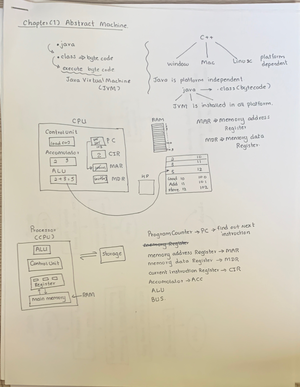 Chapter(1) Abstract Machine
• java
• class → byte code
• execute byte code
Java Virtual Machine
(JVM)
C++
window Mac Linux
platform
dependent
Java is platform independent
java → class (bytecode)
JVM is installed in as platform.
MAR → memory address
Register
MDR → memory data
Register
CPU
Control Unit
Accumulator
ALU
PC
CIR
MAR
MDR
RAM
HP
Processor
(CPU)
ALU
Control Unit
Register
main memory
RAM
storage
Program Counter → PC → find out next
instruction
memory Register
memory address Register → MAR
memory data Register → MDR
current instruction Register → CIR
Accumulator → ACC
ALU
BUS